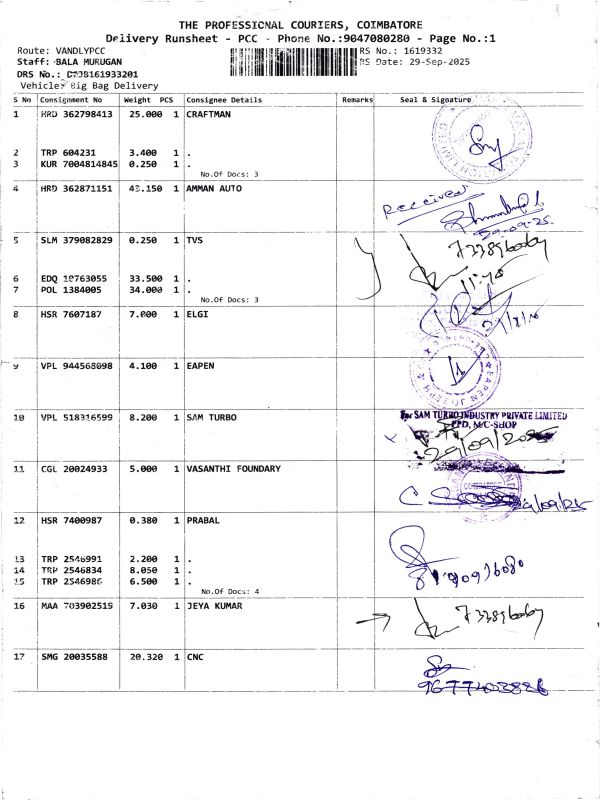 THE PROFESSIONAL COURIERS, COIMBATORE
Delivery Runsheet - PCC - Phone No.:9047080280 - Page No.:1
Route: VANDLYPCC RS No.: 1619332
Staff: BALA MURUGAN RS Date: 29-Sep-2025
DRS No.:
Vehicle: Big Bag Delivery
S No Consignment No Weight PCS Consignee Details Remarks Seal & Signature
1 HRD 362798413 25.000 1 CRAFTMAN
2 TRP 604231 3.400 1 .
3 KUR 7004814845 0.250 1 .
No.Of Docs: 3
4 HRD 362871151 43.150 1 AMMAN AUTO
Received
29.09.25
5 SLM 379082829 0.250 1 TVS
6 EDQ 10763055 33.500 1 .
7 POL 1384005 34.000 1 .
No.Of Docs: 3
8 HSR 7607187 7.000 1 ELGI
9 VPL 944568098 4.100 1 EAPEN
10 VPL 518316599 8.200 1 SAM TURBO
For SAM TURBO INDUSTRY PRIVATE LIMITED
M/C-SHOP
29/09/2025
11 CGL 20024933 5.000 1 VASANTHI FOUNDARY
12 HSR 7400987 0.380 1 PRABAL
13 TRP 2546991 2.200 1 .
14 TRP 2546834 8.050 1 .
15 TRP 2546986 6.500 1 .
No.Of Docs: 4
16 MAA 703902519 7.030 1 JEYA KUMAR
17 SMG 20035588 20.320 1 CNC